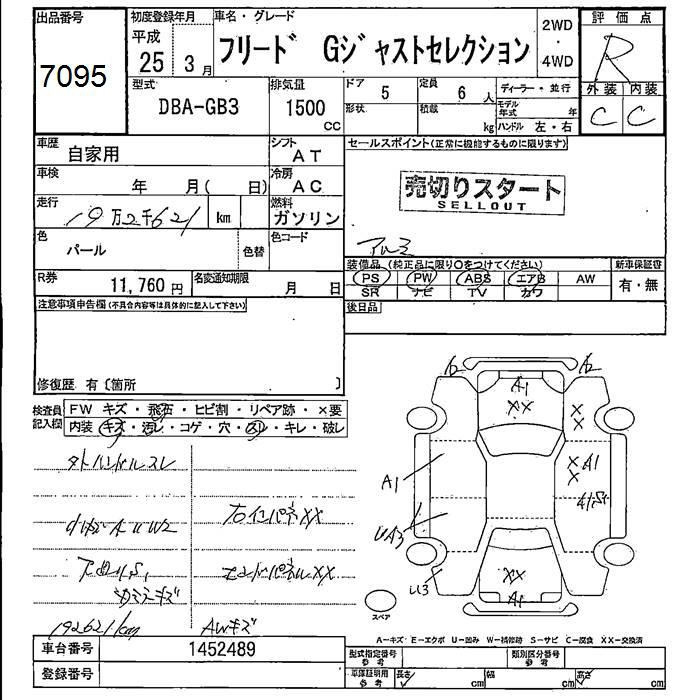 出品番号
7095
初度登録年月
平成
25 3月
車名・グレード
フリード Gジャストセレクション
2WD
・
4WD
評価点
R
外装 内装
C C
型式
DBA-GB3
排気量
1500
CC
ドア 5
定員 6 人
形状
積載 kg
ディーラー・並行
モデル年式 年
ハンドル 左・右
車歴
自家用
シフト
AT
車検
年 月( 日)
冷房
AC
走行
19万2千621 km
燃料
ガソリン
色
パール
色替
色コード
R券
11,760 円
名変通知期限
月 日
セールスポイント(正常に機能するものに限ります)
売切りスタート
SELLOUT
アルミ
装備品 (純正品に限り○をつけてください)
PS PW ABS エアB AW
SR ナビ TV カワ
新車保証書
有・無
後日品
注意事項申告欄(不具合内容等は具体的に記入して下さい)
修復歴 有〔箇所 〕
検査員記入欄
FW キズ・飛石・ヒビ割・リペア跡・×要
内装 キズ・汚レ・コゲ・穴・スレ・キレ・破レ
タトハンドルスレ
右インパネXX
エンドパネルXX
192621km
AWキズ
A2 A2
A1
XX
X
X
X A1
X
A1
UA3
U3
XX
A1
スペア
A-キズ E-エクボ U-凹み W-補修跡 S-サビ C-腐食 XX-交換済
車台番号
1452489
登録番号
型式指定番号
参考
類別区分番号
参考
車庫証明用
参考
長さ cm
幅 cm
高さ cm